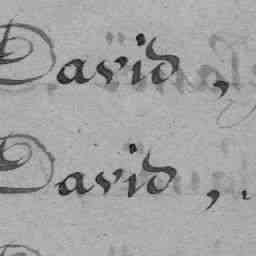 David,
David,.